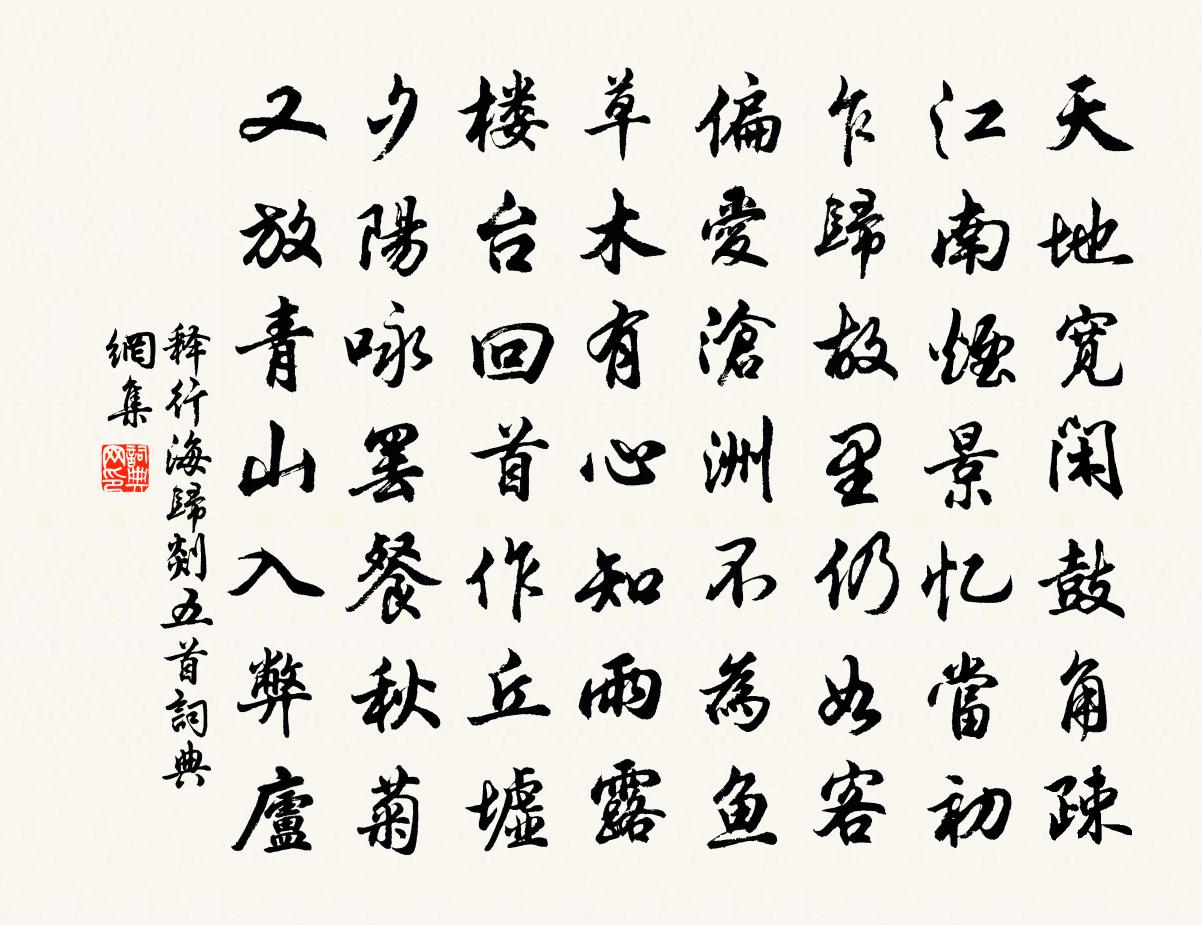 天地宽闲鼓角疎
江南煙景忆當初
乍歸故里仍如客
偏愛滄洲不為鱼
草木有心知雨露
楼台回首作丘墟
夕陽咏罢餐秋菊
又放青山入弊廬
释行海歸剡五首詞典
網集
詞典
网印